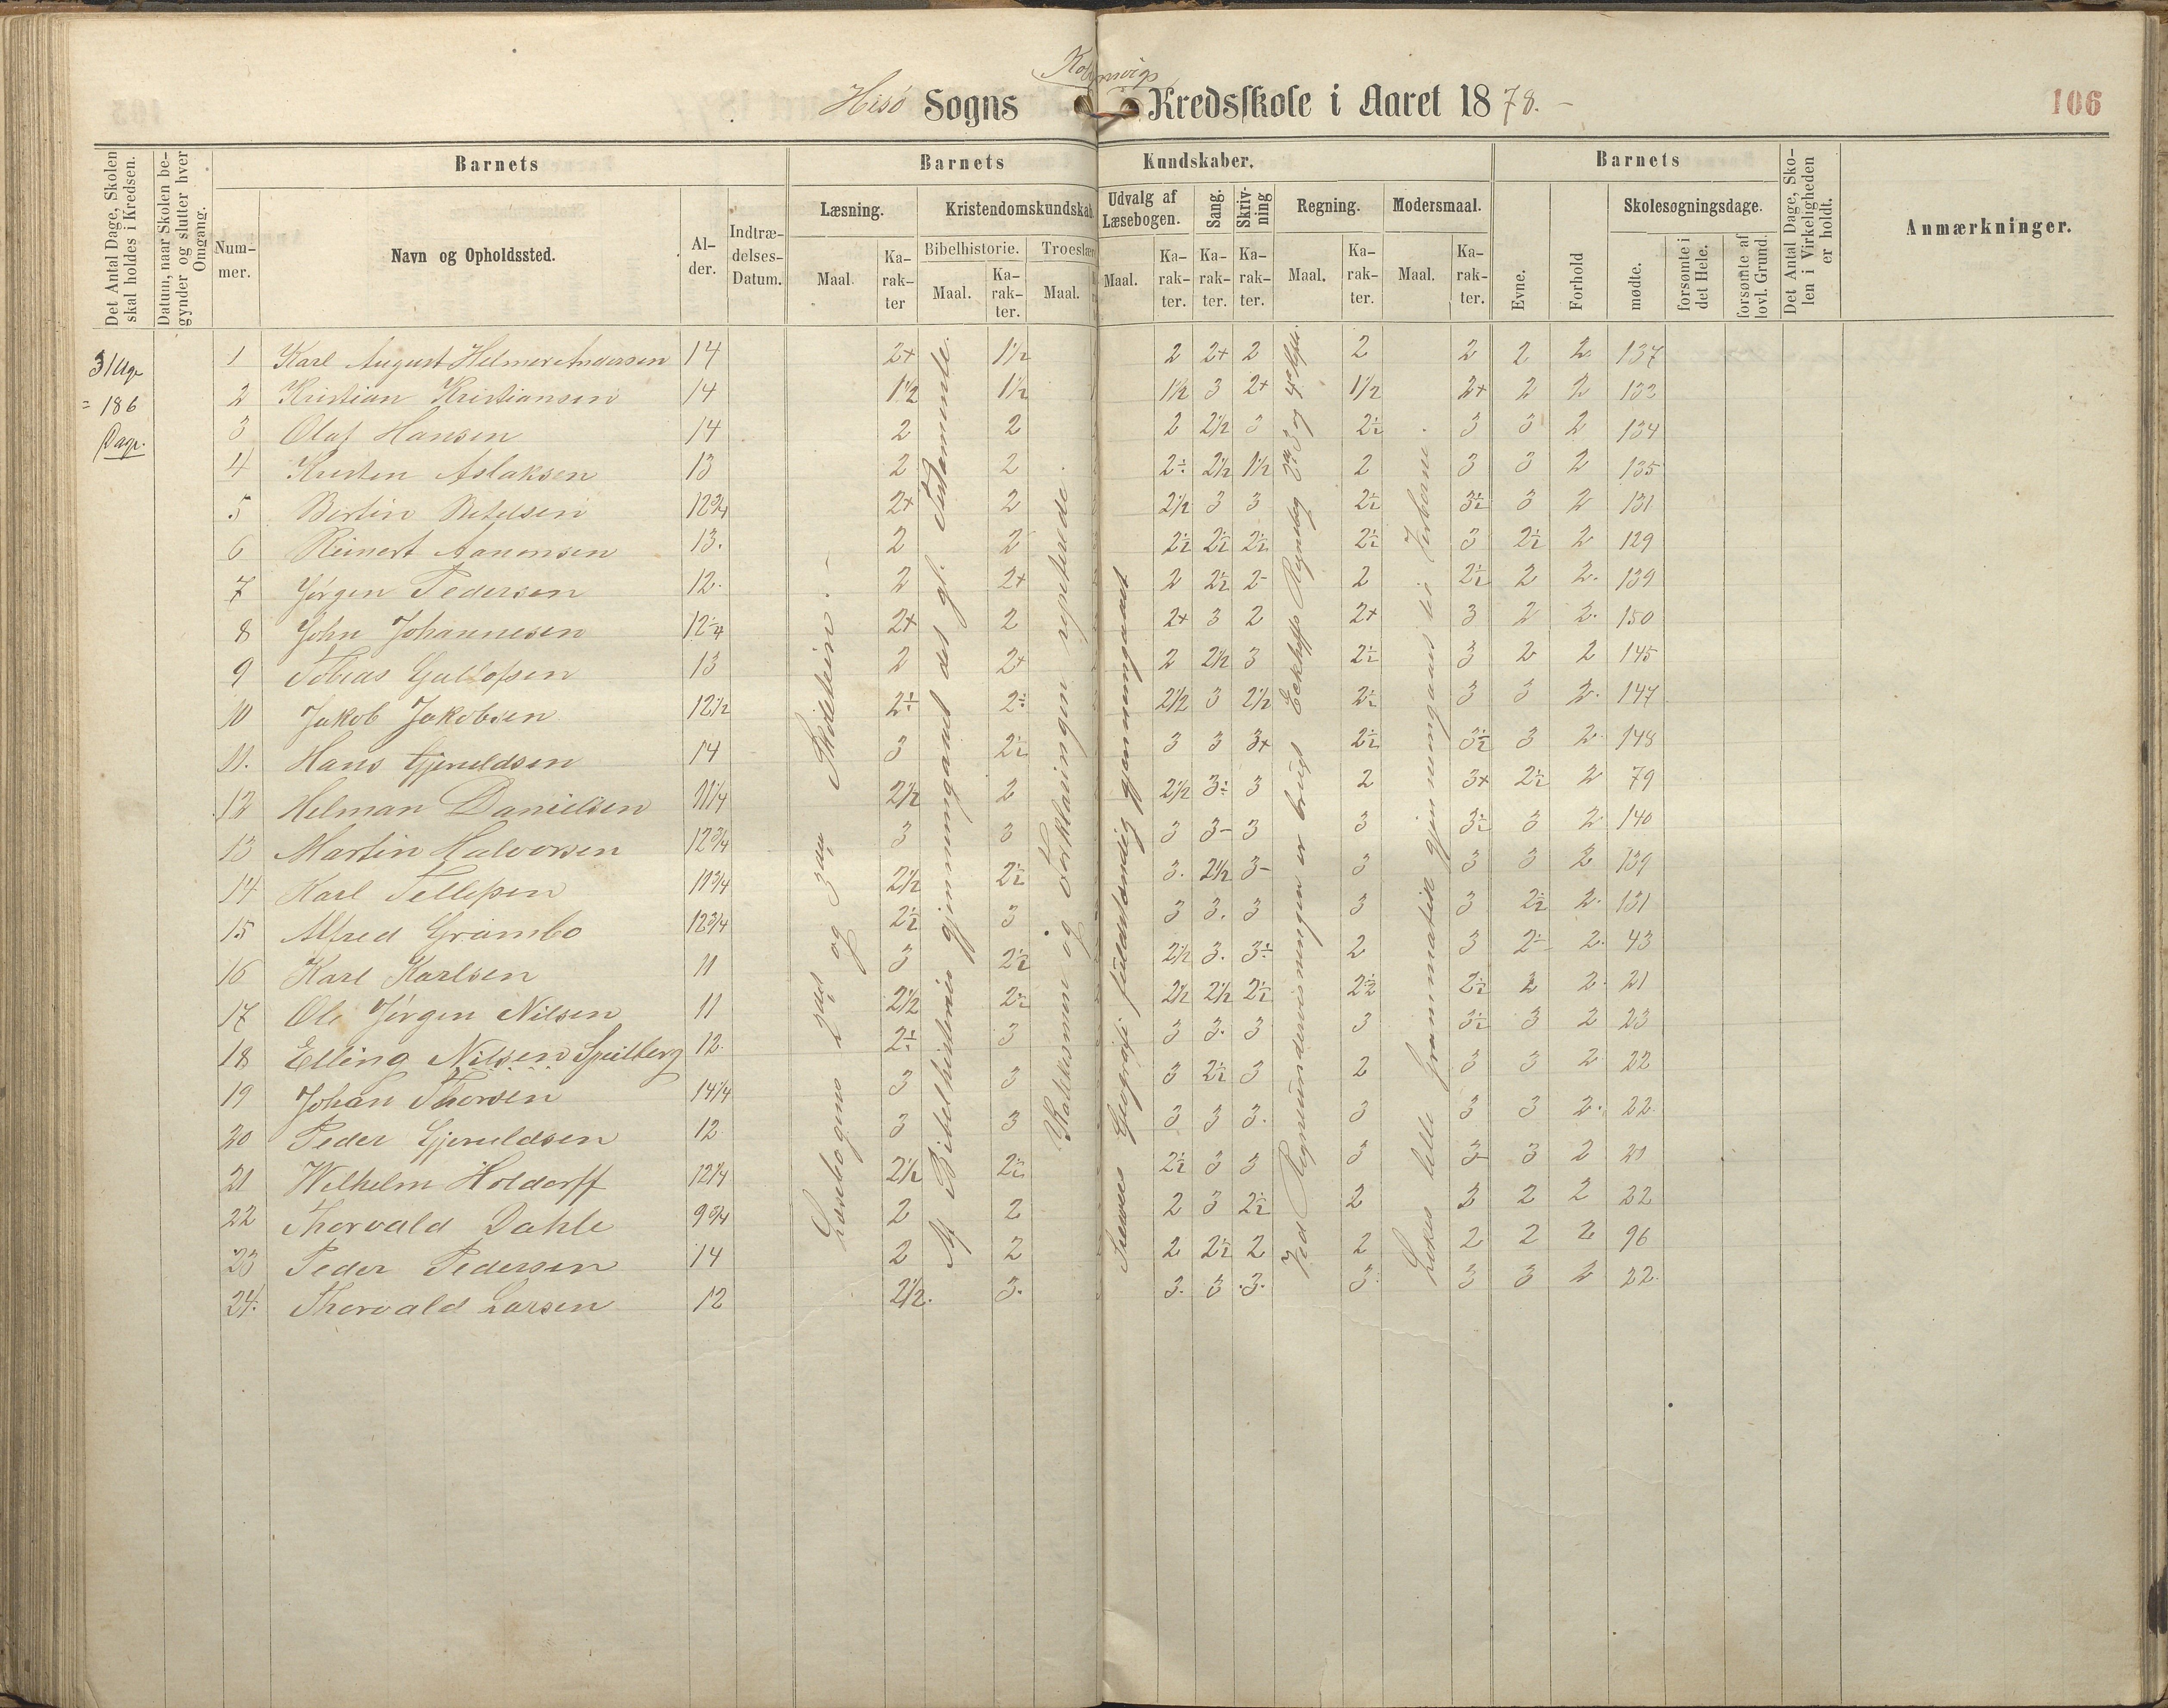 Hisö Sogns Kredsskole i Aaret 1878. 106
Det Antal Dage, Skolen skal holdes i Kredsen.
Datum, naar Skolen begynder og slutter hver Omgang.
Barnets
Nummer.
Navn og Opholdssted.
Alder.
Indtrædelses-Datum.
Barnets Kundskaber.
Læsning.
Maal. Karakter
Kristendomskundskab
Bibelhistorie.
Maal. Karakter.
Troeslære
Maal.
Udvalg af Læsebogen.
Maal. Karakter.
Sang.
Karakter.
Skrivning
Karakter.
Regning.
Maal. Karakter.
Modersmaal.
Maal. Karakter.
Barnets
Evne.
Forhold
Skolesøgningsdage.
mødte.
forsømte i det Hele.
forsømte af lovl. Grund.
Det Antal Dage, Skolen i Virkeligheden er holdt.
Anmærkninger.
31 Uge
= 186
Dage.
1 Karl August Helmer Andersen 14 2+ 1½ 2 2+ 2 2 2 2 2 137
2 Kristian Kristiansen 14 1½ 1½ 1½ 3 2+ 1½ 2+ 2 2 132
3 Olaf Hansen 14 2 2 2 2½ 3 2½ 3 3 2 134
4 Kristen Aslaksen 13 2 2 2÷ 2½ 1½ 2 3 3 2 135
5 Bertin Betelsen 12¾ 2+ 2 2½ 3 3 2½ 3½ 3 2 131
6 Reinert Aanonsen 13. 2 2 2½ 2½ 2½ 2½ 3 2½ 2 129
7 Jörgen Pedersen 12. 2 2+ 2 2½ 2- 2 2½ 2 2. 139
8 John Johannesen 12¼ 2+ 2 2+ 3 2 2+ 3 2 2. 150
9 Tobias Gullofsen 13 2 2+ 2 2½ 3 2½ 3 2 2 145
10 Jakob Jakobsen 12½ 2÷ 2÷ 2½ 3 2½ 2½ 3 3 2. 147
11. Hans Gjeruldsen 14 3 2½ 3 3 3+ 2½ 3½ 3 2 148
12 Helman Danielsen 11¼ 2½ 2 2½ 3÷ 3 2 3+ 2½ 2 79
13 Martin Halvorsen 12¾ 3 3 3 3- 3 3 3½ 3 2 140
14 Karl Tellefsen 11¾ 2½ 2½ 3. 2½ 3- 3 3 3 2 139
15 Alfred Grambo 12¾ 2½ 3 3 3. 3 3 3 2½ 2. 131
16 Karl Karlsen 11 3 2½ 2½ 3. 3÷ 2 3 2÷ 2. 43
17 Ole Jörgen Nilsen 11 2½ 2½ 2½ 2½ 2½ 2½ 2½ 2 2. 21
18 Elling Nilsen Speilberg 12. 2÷ 3 3 3. 3 3 3½ 3 2 23
19 Johan Thorsen 14¼ 3 3 3 2½ 3 2 3 3 2 22
20 Peder Gjeruldsen 12 3 3 3 3 3. 3 3 3 2. 22
21 Wilhelm Holdorff 12¼ 2½ 2½ 2½ 3 3 3 3- 3 2 21
22 Thorvald Dahle 9¾ 2 2 2 3 2½ 2 3 2 2 22
23 Peder Pedersen 14 2 2 2 2½ 2 2 2 2 2 96
24. Thorvald Larsen 12 2½. 3. 3. 3 3. 3 3 3 2 22.
Læsebogens 2det og 3die Skoletrin.
Af Bibelhistorien gjennemgaaet det gl. Testamente.
Katekismen og Forklaringen repeterede.
Geografi fuldstændig gjennemgaaet
Ved Regneundervisningen er brugt Eckhoffs Regnebog 2det, 3 og 4de Hefte.
Grammatik gjennemgaaet til Verberne.